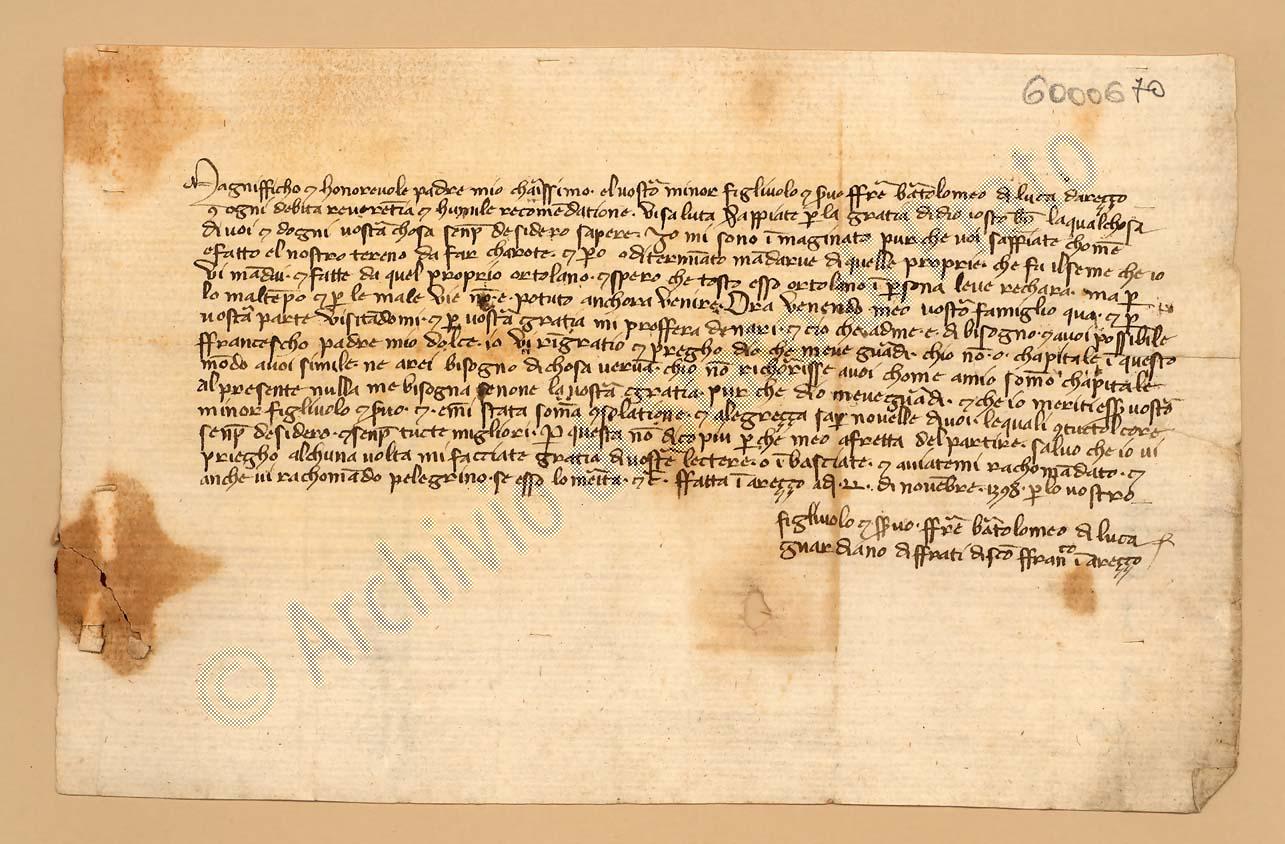 6000670
Magnifficho et honorevole padre mio charissimo. el vostro minor figlivolo et servo ffrate bartolomeo di luca darezzo
con ogni debita reverentia et humile recomendatione. visaluta. Sappiate per la gratia di dio io sto bene laqualchosa
di voi et dogni vostra chosa semper desidero sapere. Io mi sono imaginato pur che voi sappiate chome
efatto el nostro tereno da far charote. et pero o diterminato mandarve di quelle proprie. che fu il seme che io
vi mandai. et fatte da quel proprio ortolano. et spero che tosto esso ortolano in persona leve rechara. ma per
lo maltempo et per le male vie non e. potuto anchora venire. Ora venendo meo vostro famiglio qua. et per
vostra parte visitandomi. et per vostra gratia mi proffera denari. et cio che adme. e. di bisogno. et avoi possibile
ffrancescho padre mio dolce. io vi ringratio et pregho dio che meve guardi. chio non. o. chapitale in questo
mondo avoi simile. ne arei bisogno dichosa veruna. chio non richorisse avoi chome amio sommo chapitale
Al presente nulla me bisogna senone la vostra gratia. pur che dio meveguardi. et che io meriti esser vostro
minor figlivolo et servo. et. emmi stata somma consolatione. et alegrezza saper novelle divoi. lequali contuctol core
semper desidero. et semper tucte migliori. Per questa non dico piu perche meo afretta del partire. salvo che io vi
priegho alchuna volta mi facciate gratia di vostre lectere. o imbasciate. et aviatemi rachomandato. et
anche vi rachomando pelegrino. se esso lo merita. etc. ffatta in arezzo adi. 22. di novembre. 1398. per lo vostro
figlivolo et servo. ffrate bartolomeo di luca
guardiano diffrati disancto ffrancesco in arezzo
© Archivio di Stato di Prato